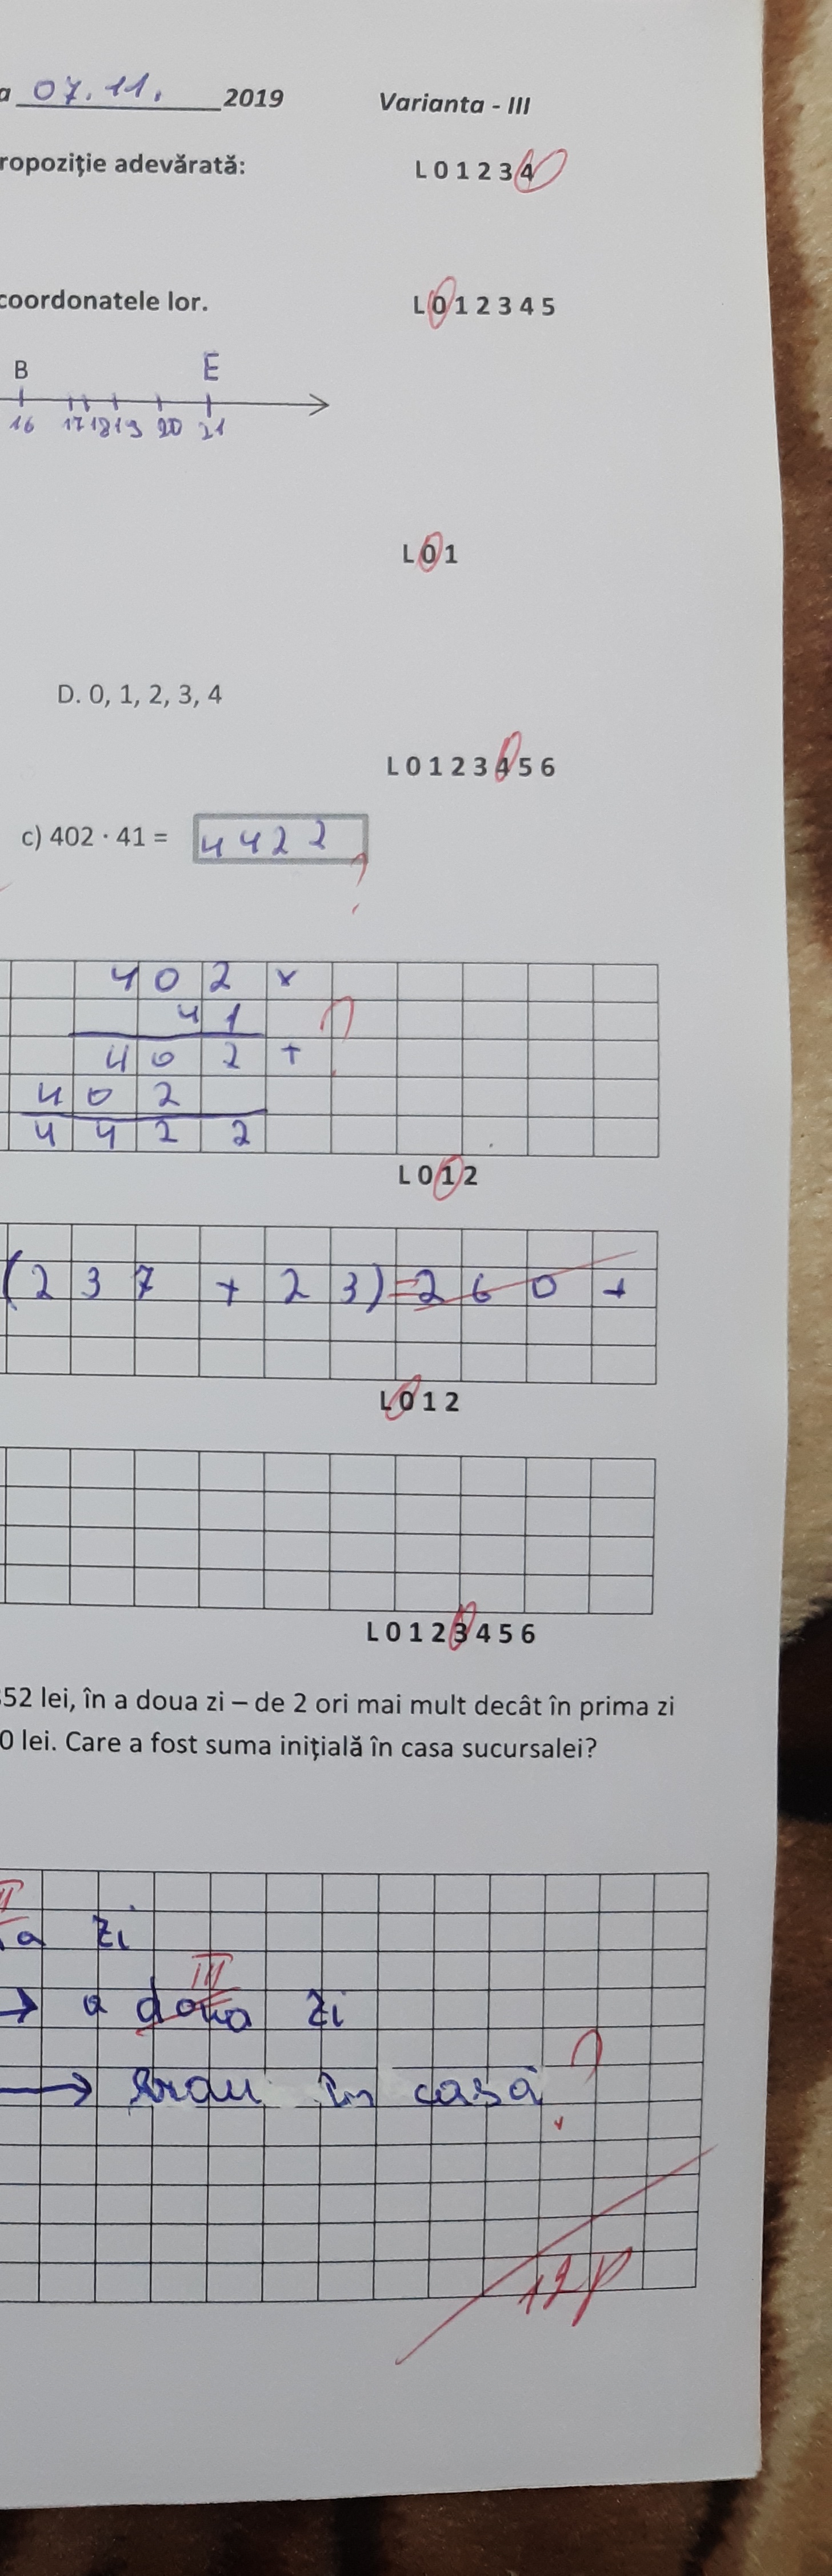 a 07.11. 2019 Varianta - III
ropoziție adevărată: L 0 1 2 3 4
coordonatele lor. L 0 1 2 3 4 5
B E
16 17 18 19 20 21
L 0 1
D. 0, 1, 2, 3, 4
L 0 1 2 3 4 5 6
c) 402 · 41 = 4422
?
4 0 2 x
4 1 ?
4 0 2 +
4 0 2
4 4 2 2
L 0 1 2
(2 3 7 + 2 3)=2 6 0 +
L 0 1 2
L 0 1 2 3 4 5 6
52 lei, în a doua zi – de 2 ori mai mult decât în prima zi
0 lei. Care a fost suma inițială în casa sucursalei?
II
a zi
III
→ a doua zi
→ erau în casă ?
12p